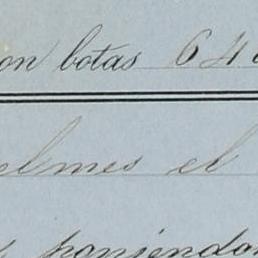 on botas 64
elmes el
poniendo